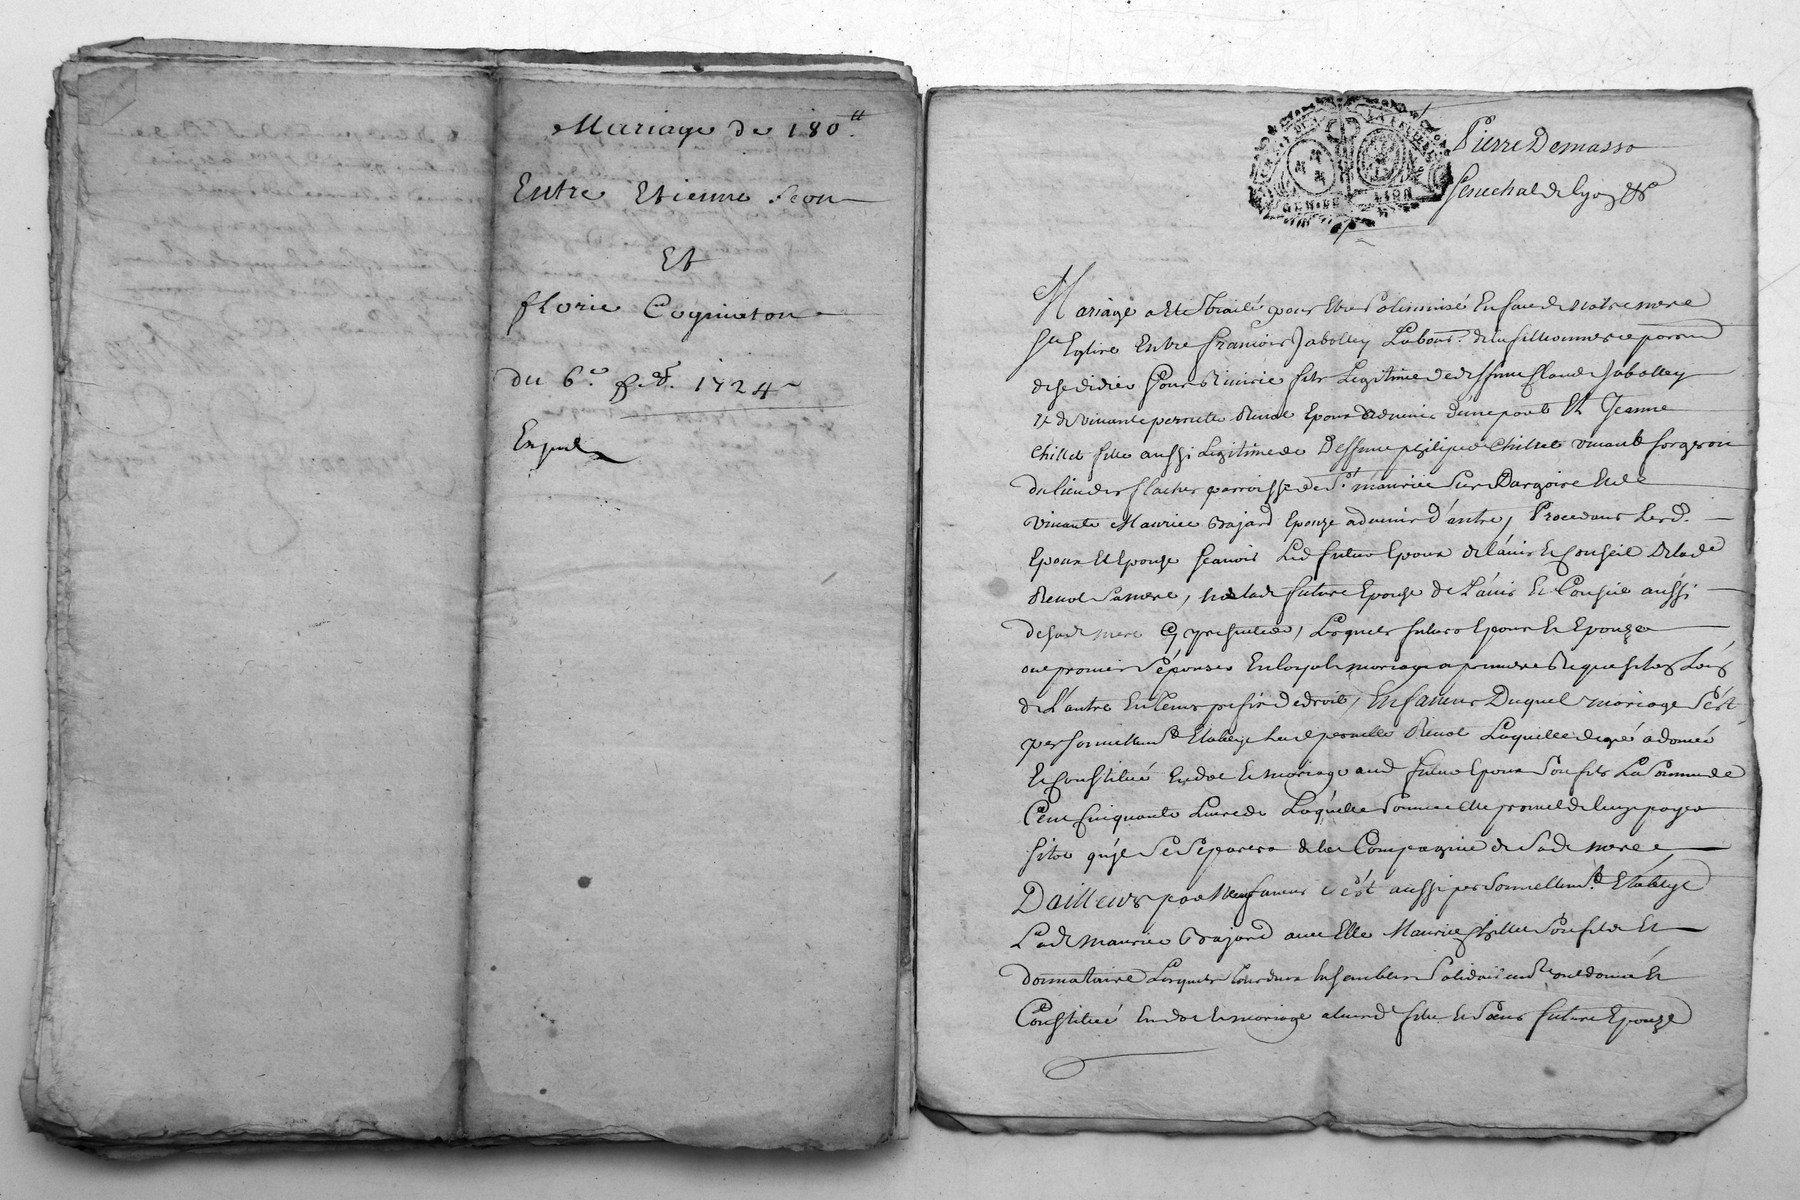 Mariage de 180.tt
Entre Etienne Seon
Et
florie Cognieton
du 6.e 1724
Expedié
Pierre Demasso
Senechal de Lyon &c
GENERALITE LION
Mariage a été traité pour être Solemnisé En face de notre mere
Ste Eglise Entre francois Jabolley Labour.
fils Legitime de deffunt Claude Jabolley
Et de vivante perrette Renot Epoux advenir d'une part Et Jeanne
Chillet fille aussi Legitime de Deffunt philipe Chillet vivant forgeron
du lieu des flaches parroisse de St. maurice Sur Dargoire Et de
vivante Maurice Brajard Epouze advenir d'autre, Procedans Lesd.
Epoux Et Epouze Scavoir Led futur Epoux de l'avis Et Conseil De lade
Renot Sa mere, Et lade future Epouze de L'avis Et Conseil aussi
de Sad mere Cy presente, Lesquels futurs Epoux Et Epouze
ont promis S'épouser En loyal mariage a premiere Requisition L'un
de L'autre En faveur Duquel mariage S'est
personnellemt Etablye Lad perrette Renot Laquelle de gré a donné
Et Constitué En dot Et mariage aud futur Epoux Son fils La Somme de
Cent Cinquante Livres Laquelle Somme Elle promet de luy payer
Sitot qu'il Se Separera de la Compagnie de Sad mere
D'ailleurs par Meme faveur s'est aussi personnellemt Etablye
Lad maurice Brajard avec Elle Maurice Chillet Son fils Et
donnataire Lesquels tous deux Ensembles Solidairemt ont donné Et
Constitué En dot Et mariage a leurd fille Et Soeur future Epouze